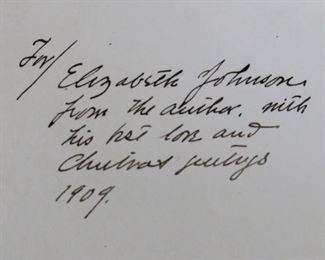 For/
Elizabeth Johnson
from the author. with
his best love and
Christmas greetings
1909.